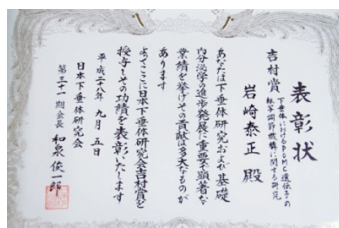 表彰状
吉村賞
下垂体におけるPOMC遺伝子の
転写調節機構に関する研究
岩﨑泰正 殿
あなたは下垂体研究および基礎
内分泌学の進歩発展に重要で顕著な
業績を挙げその貢献は多大なものが
あります
よってここに日本下垂体研究会吉村賞を
授与しその功績を表彰いたします
平成二十八年 九月 五日
日本下垂体研究会
第三十一期会長 和泉俊一郎